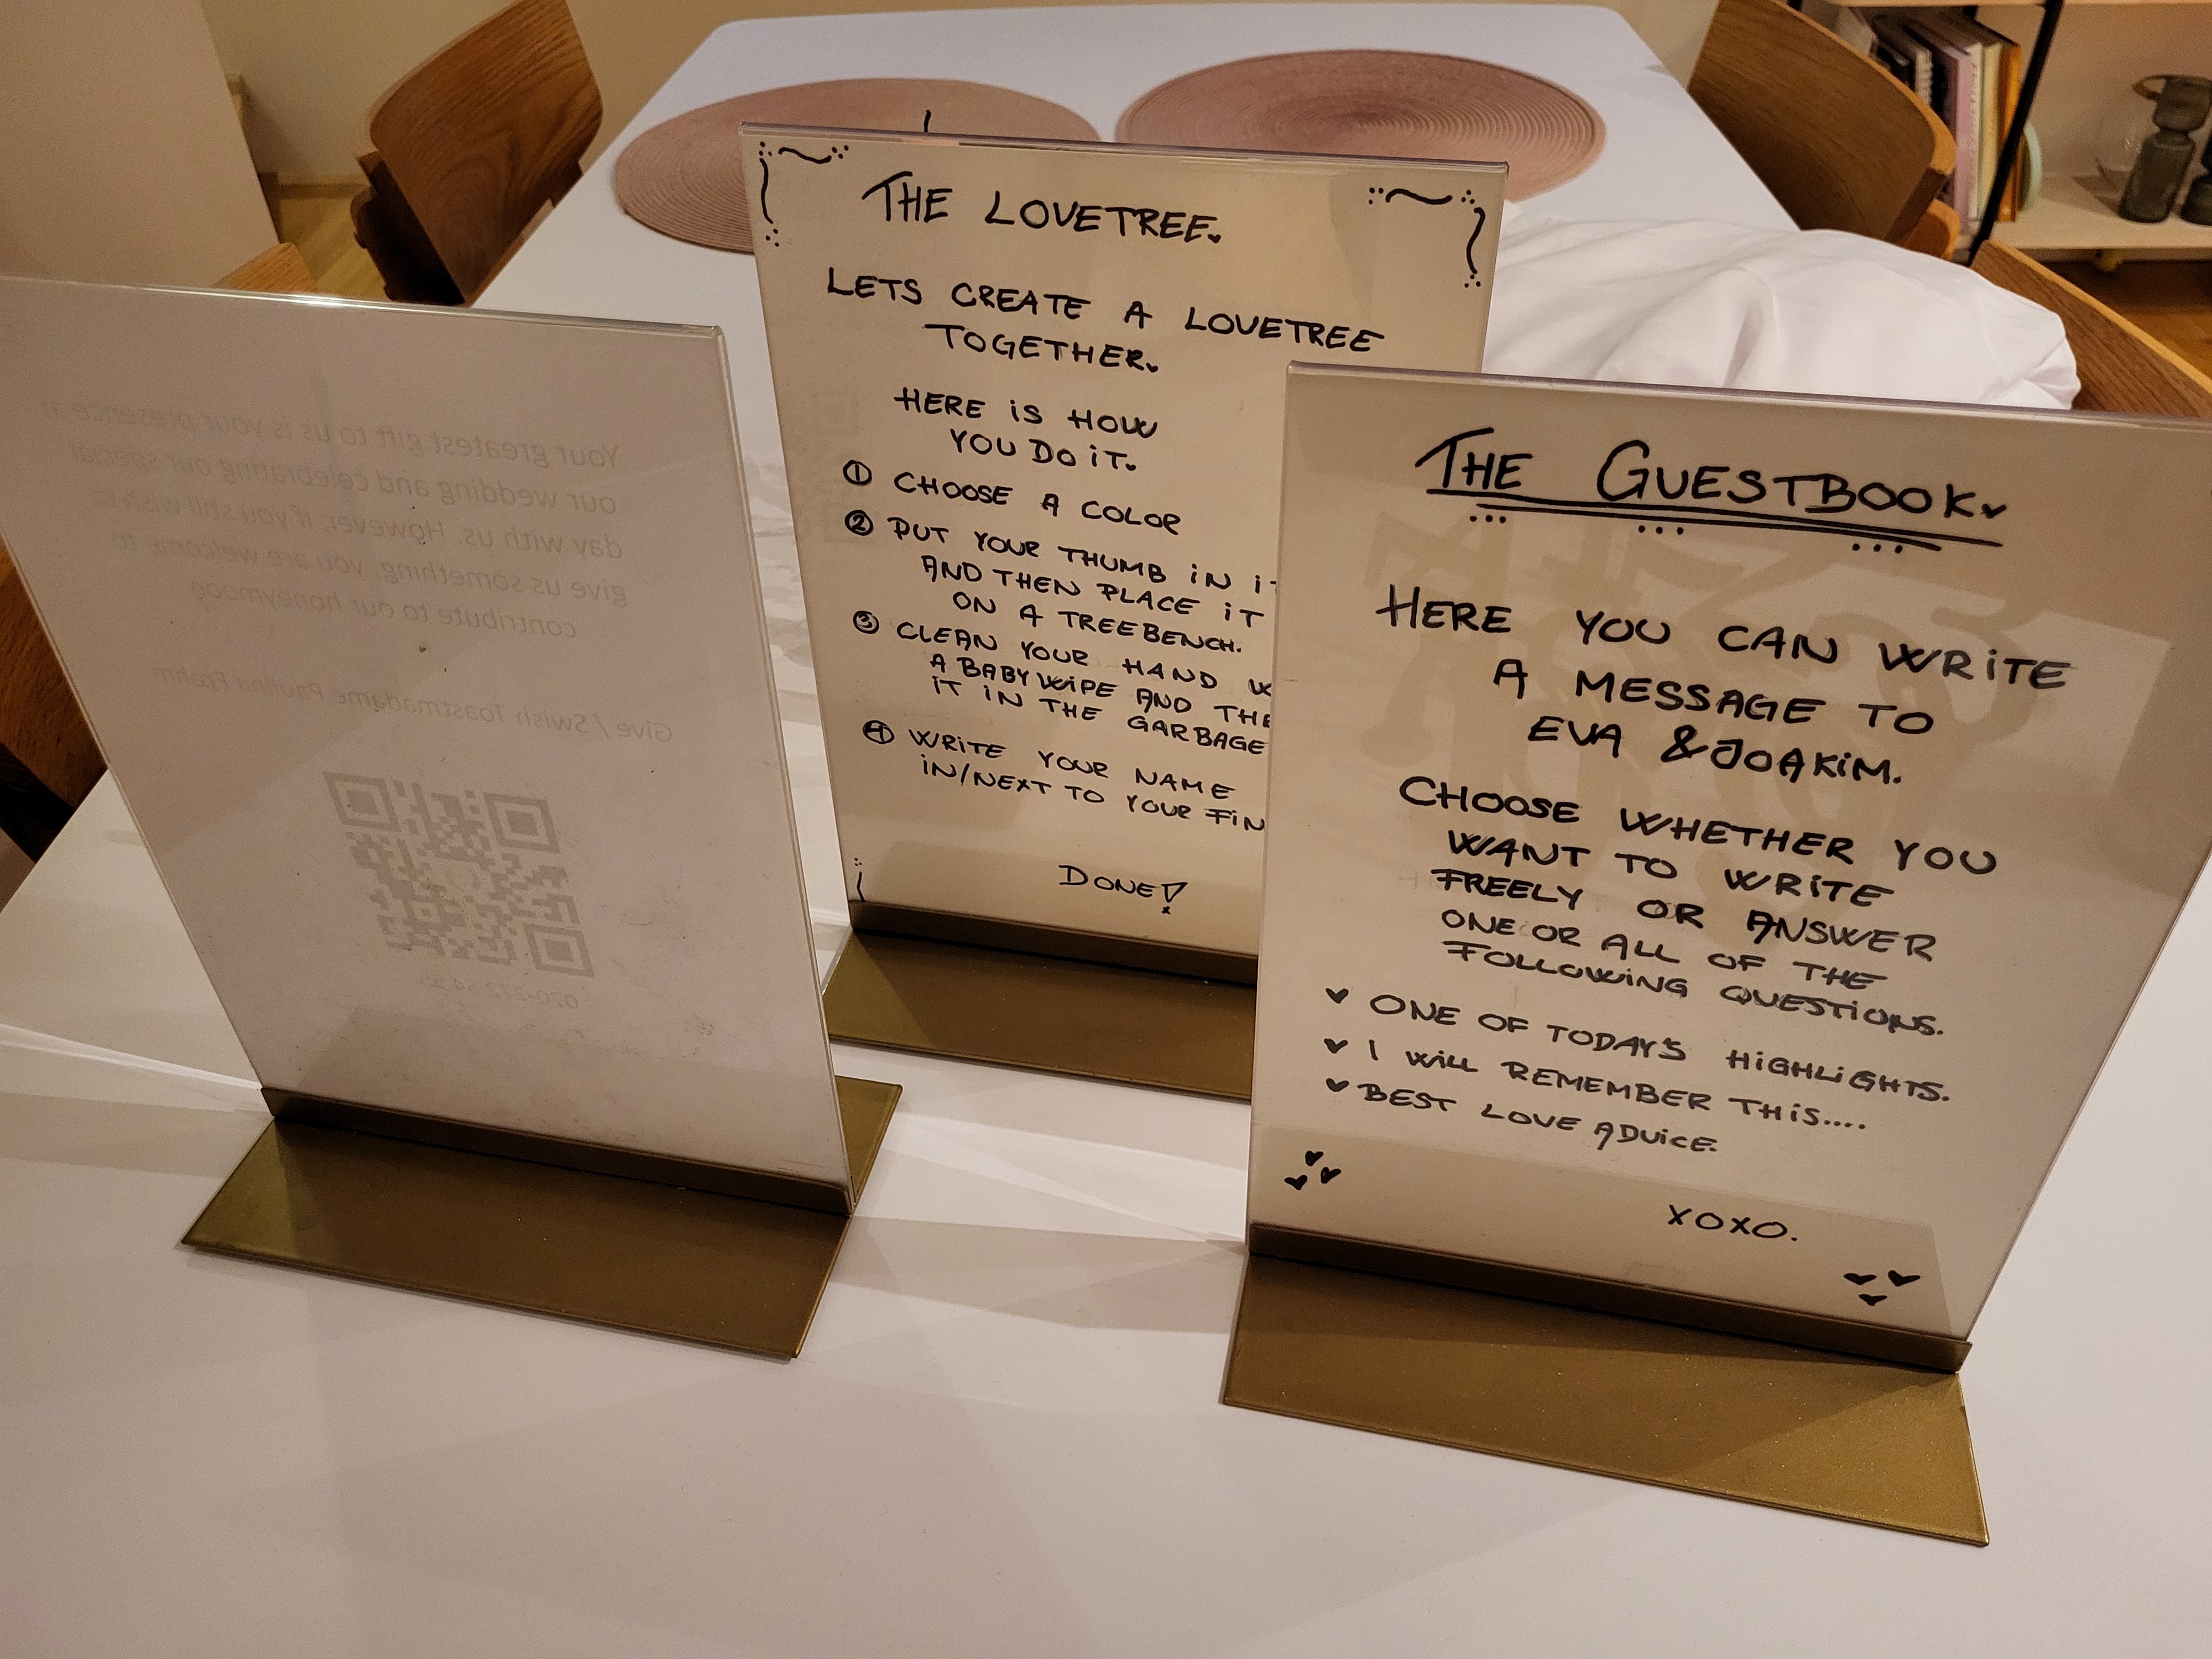 Your greatest gift to us is your presence at
our wedding and celebrating our special
day with us. However, if you still wish to
give us something, you are welcome to
contribute to our honeymoon
Give / Swish Toastmadame Paulina
THE LOVETREE
LETS CREATE A LOVETREE
TOGETHER
HERE IS HOW
YOU DO IT.
1 CHOOSE A COLOR
2 PUT YOUR THUMB IN
AND THEN PLACE IT
ON A TREEBENCH.
3 CLEAN YOUR HAND
A BABYWIPE AND
IT IN THE GARBAGE
4 WRITE YOUR NAME
IN/NEXT TO YOUR
DONE!
THE GUESTBOOK
HERE YOU CAN WRITE
A MESSAGE TO
EVA & JOAKIM.
CHOOSE WHETHER YOU
WANT TO WRITE
FREELY OR ANSWER
ONE OR ALL OF THE
FOLLOWING QUESTIONS.
♥ ONE OF TODAY'S HIGHLIGHTS.
♥ I WILL REMEMBER THIS....
♥ BEST LOVE ADVICE.
XOXO.